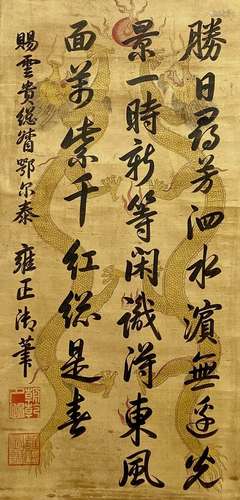 勝日尋芳泗水濱無邊光
景一時新等閑識得東風
面萬紫千紅総是春
賜雲貴総督鄂尔泰 雍正御筆